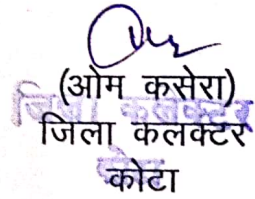 (ओम कसेरा)
जिला कलक्टर
कोटा